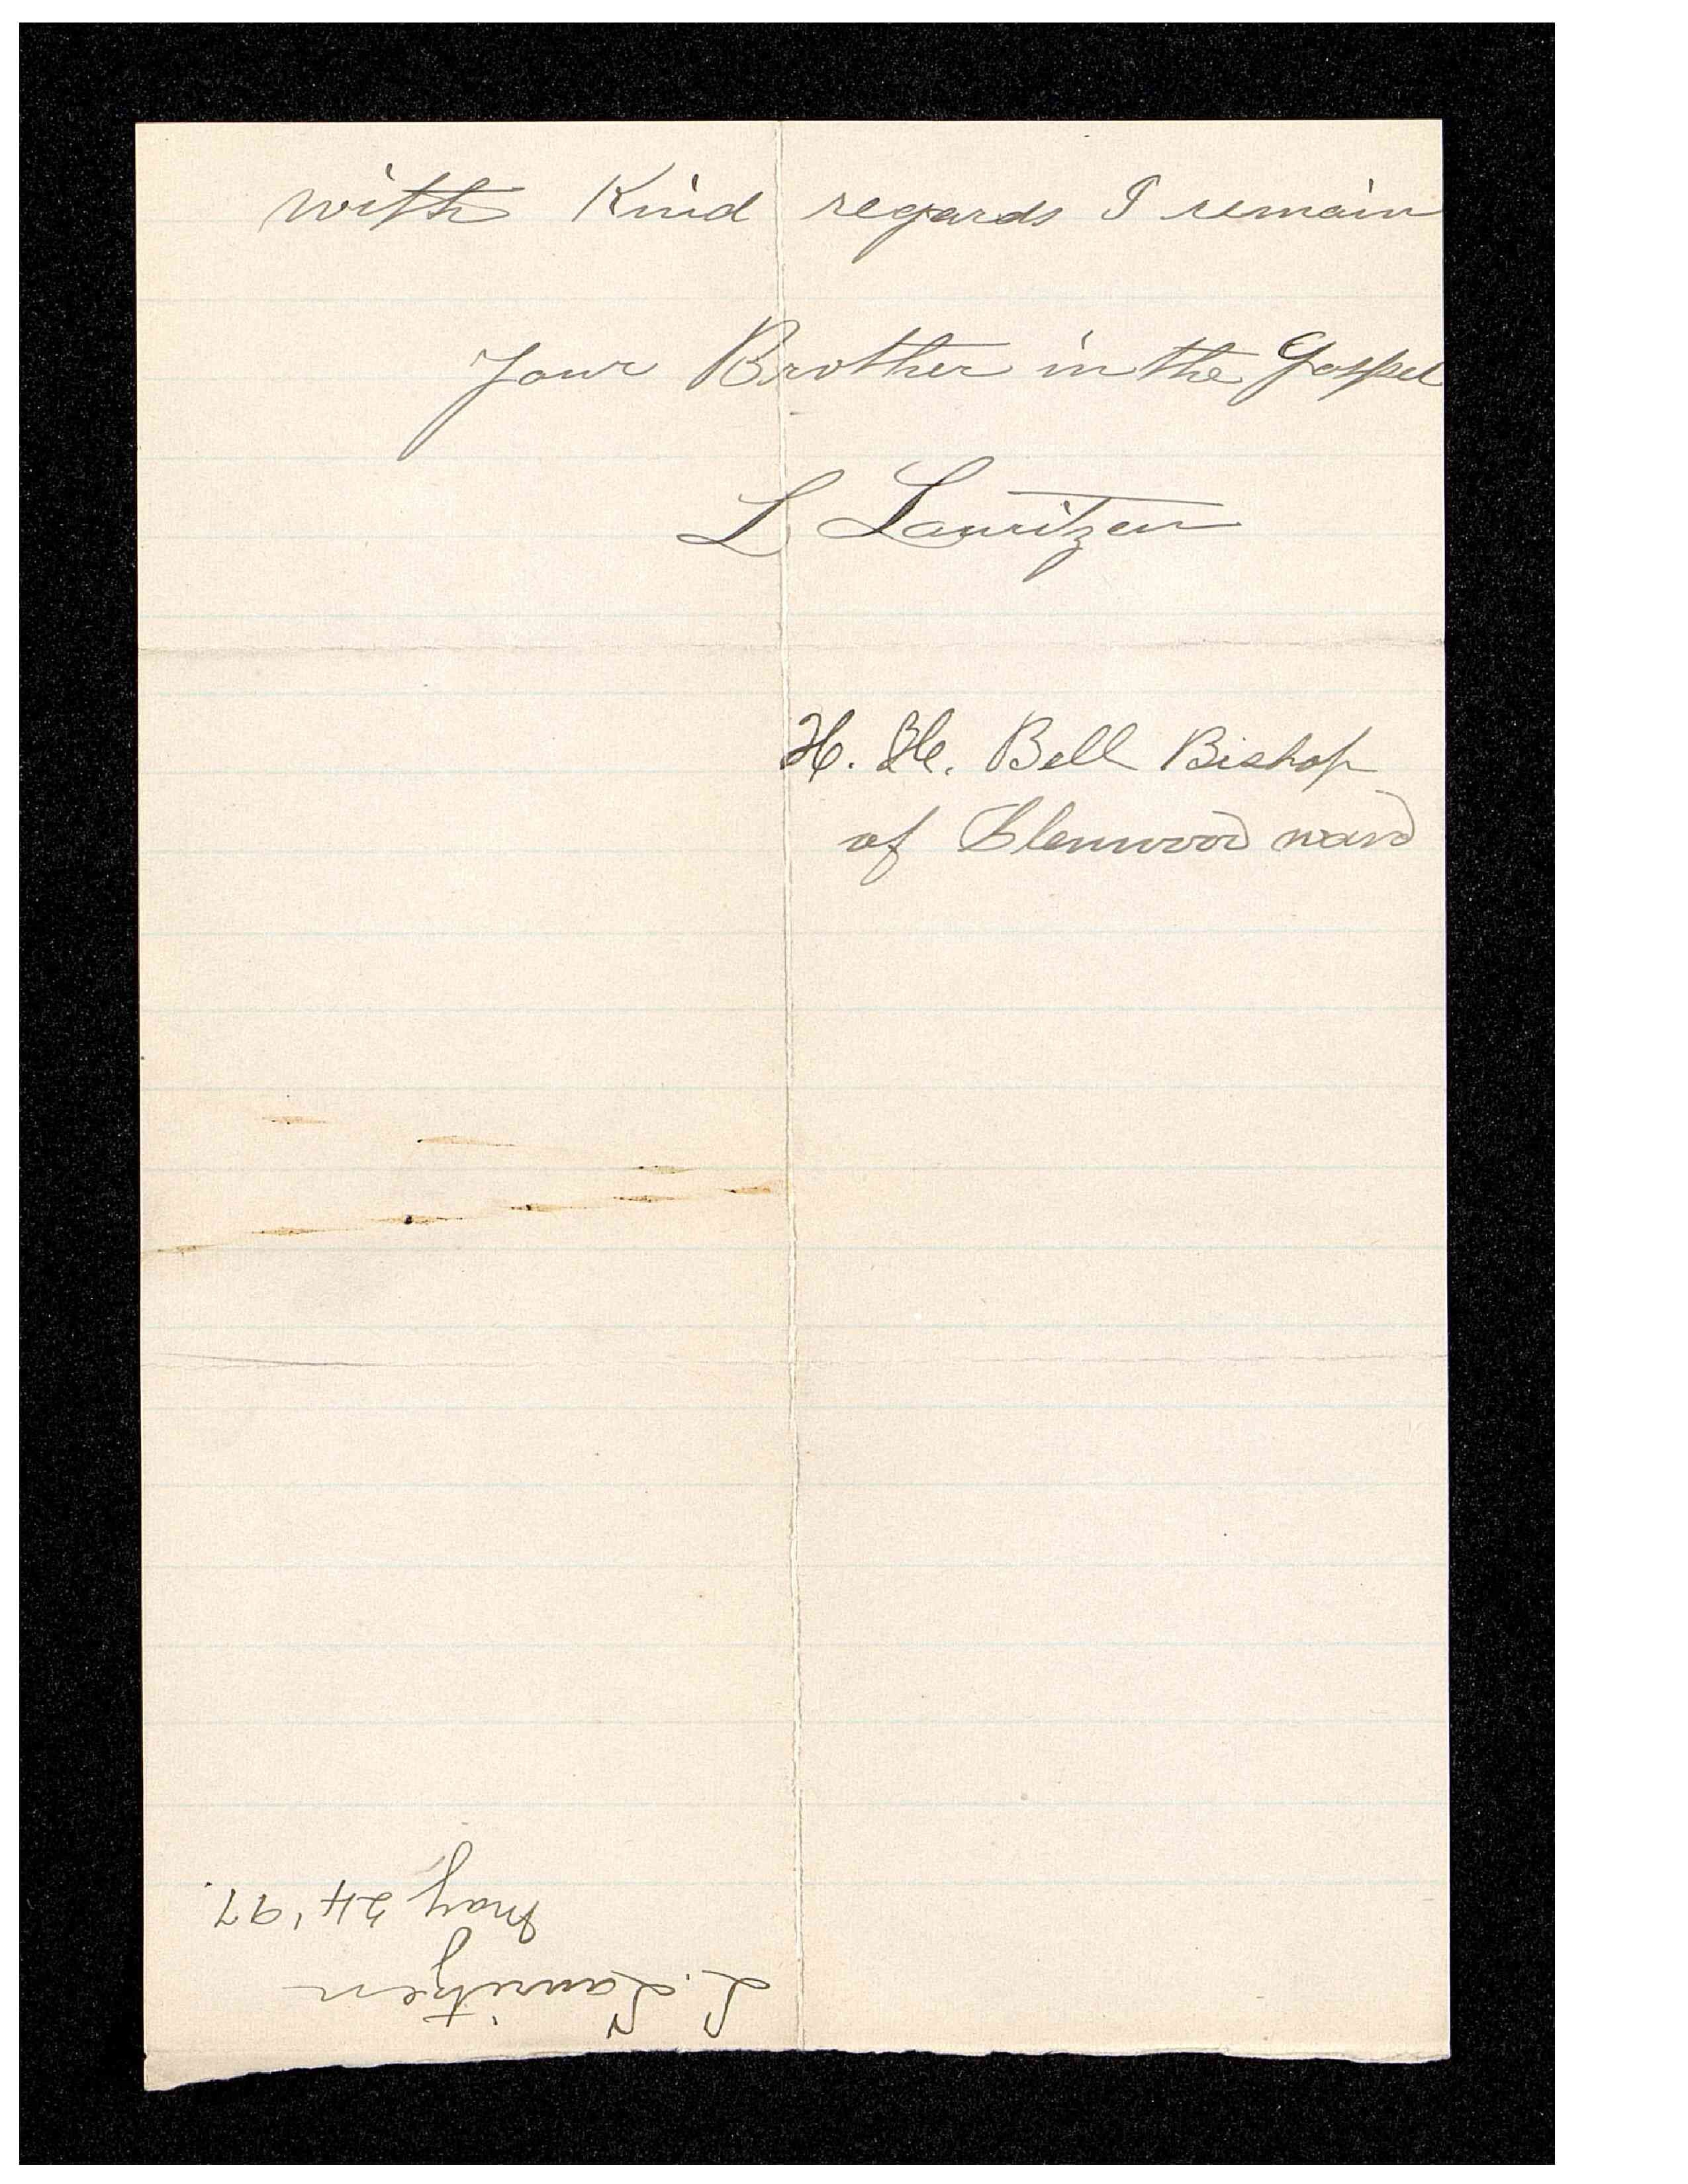 with Kind regards I remain
Your Brother in the Gospel
L Lauritzen
H. H. Bell Bishop
of Glenwood ward
L. Lauritzen
May 24 '97.